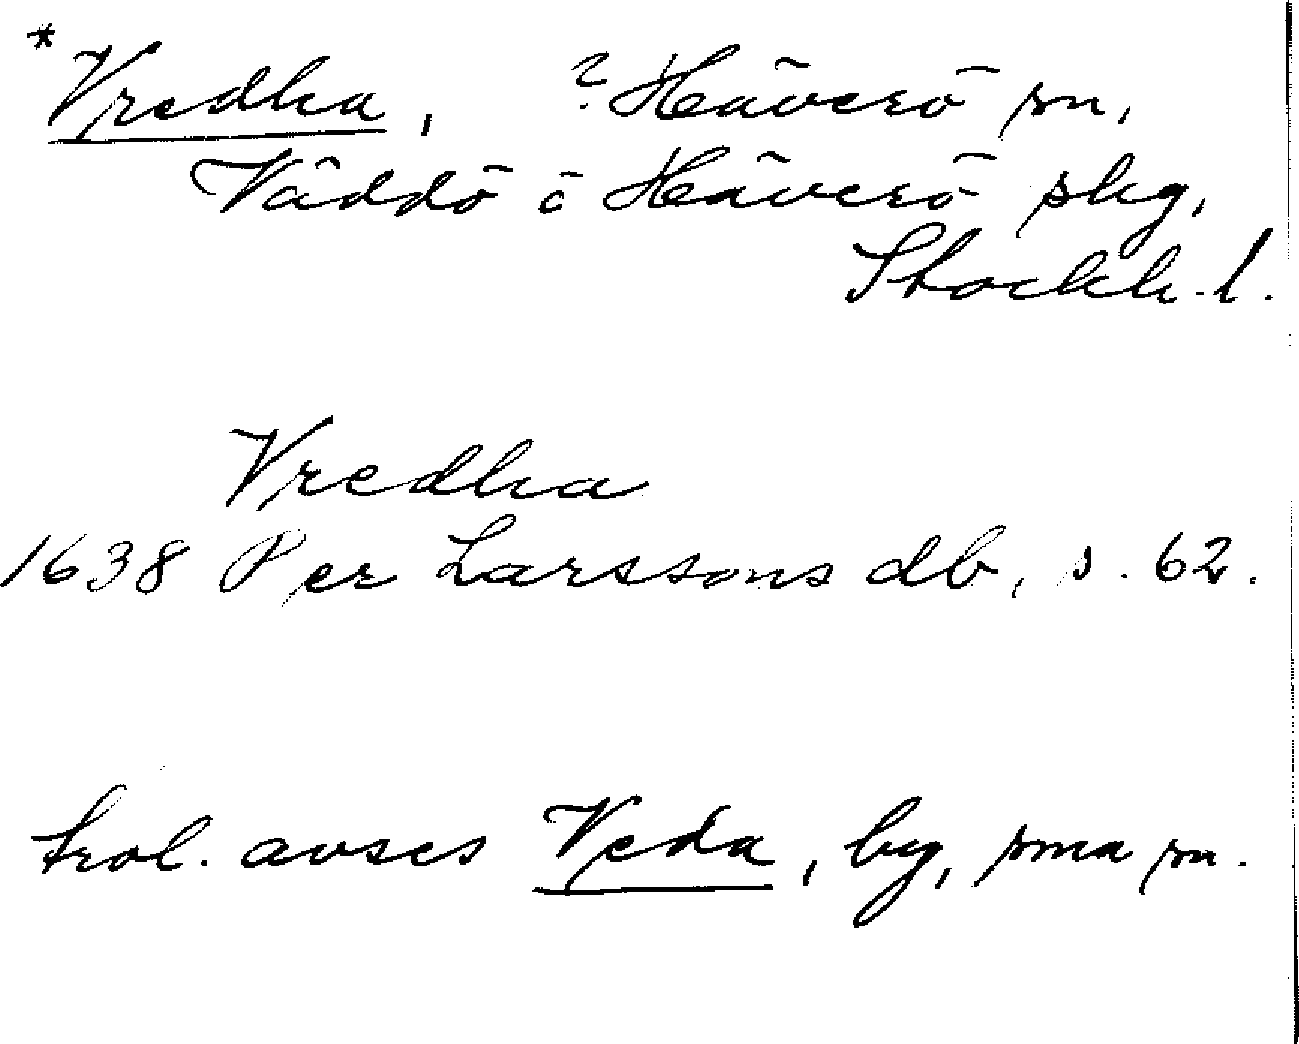 *Vredha, ? Häverö sn,
Väddö o Häverö skg,
Stockh. l.
Vredha
1638 Per Larssons db, s. 62.
trol. avses Veda, by, sma sn.